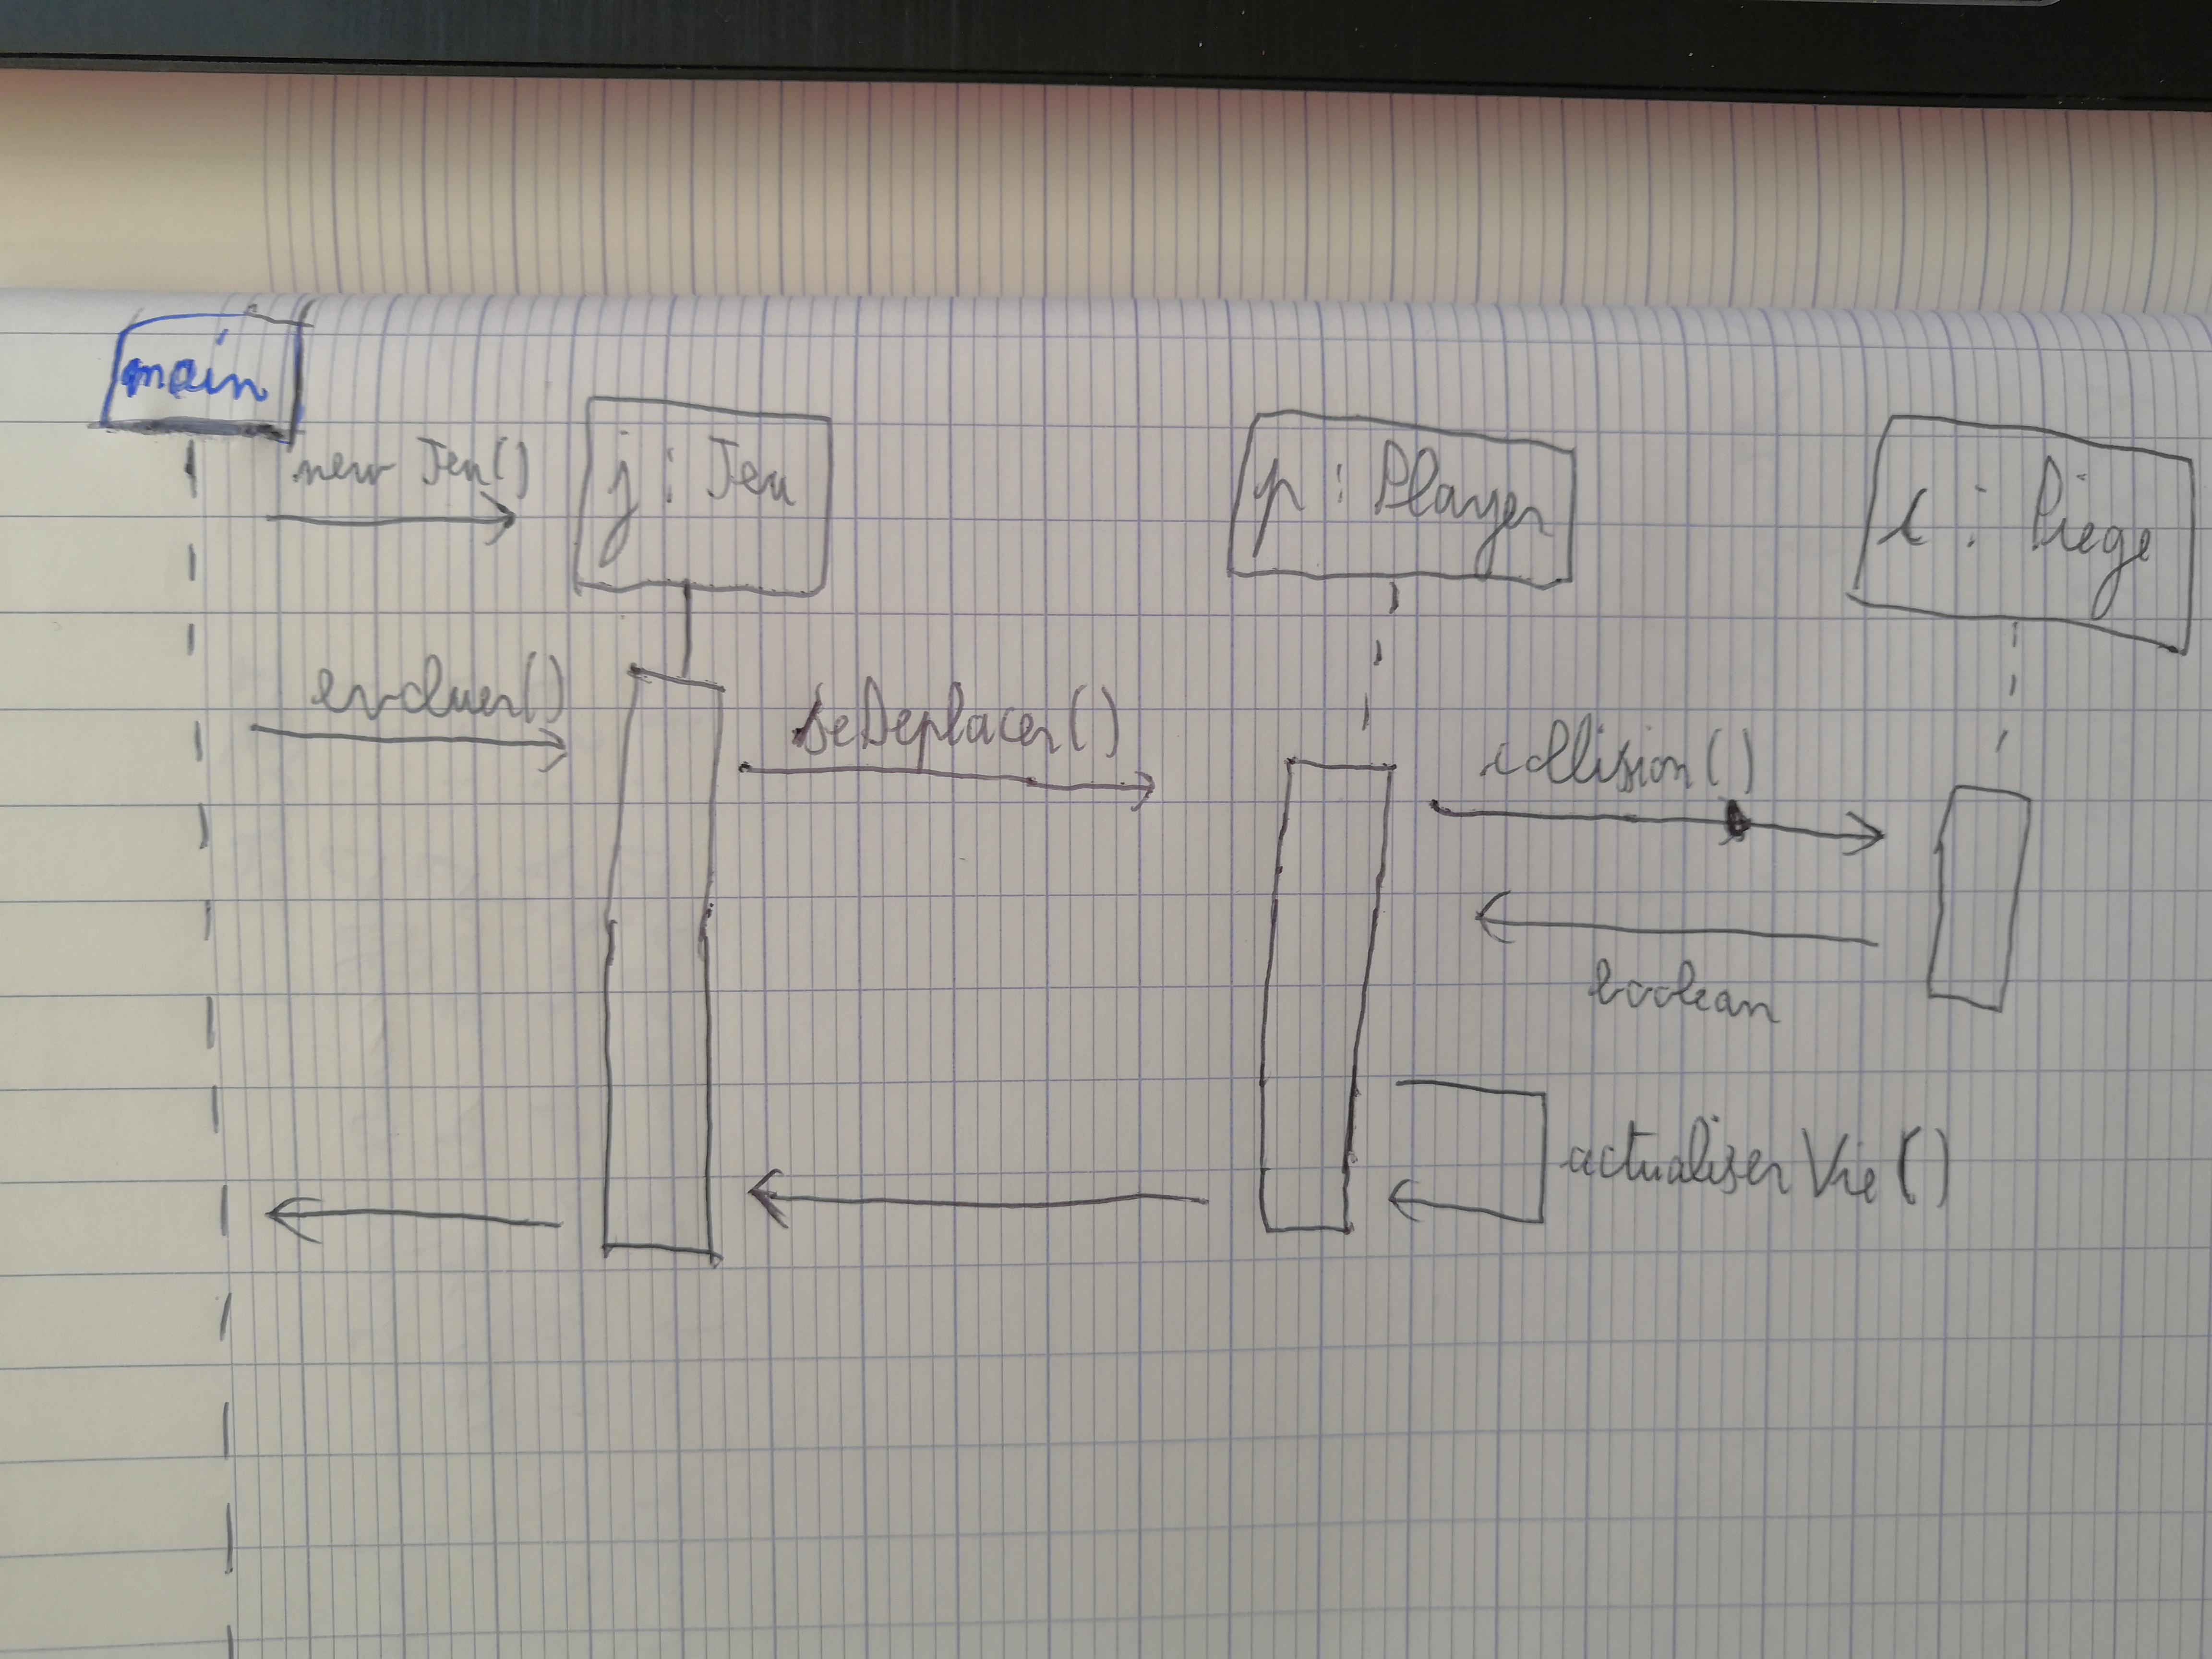 main
new Jeu()
j : Jeu
p : Player
i : Piege
evoluer()
seDeplacer()
collision()
boolean
actualiserVie()